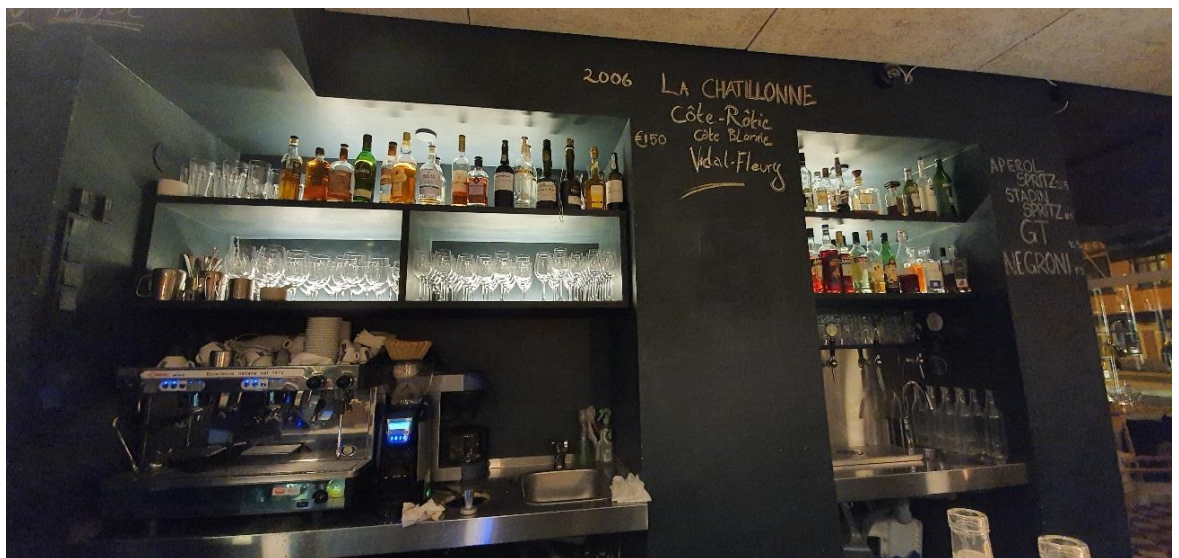 2006 LA CHATILLONNE
Côte-Rôtie
€150 Côte Blonde
Vidal-Fleury
APEROL
SPRITZ
STADIN
SPRITZ
GT
NEGRONI